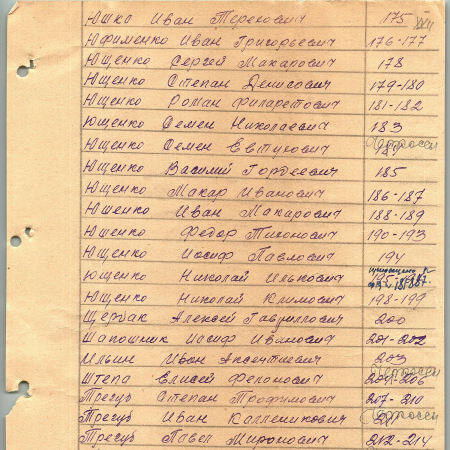 Юшко Иван Терехович 175
Юфименко Иван Григорьевич 176-177
Ющенко Сергей Макарович 178
Ющенко Степан Денисович 179-180
Ющенко Роман Филаретович 181-182
Ющенко Семен Николаевич 183
Ющенко Семен Евтухович
Ющенко Василий Гордеевич 185
Ющенко Макар Иванович 186-187
Юшенко Иван Макарович 188-189
Юшенко Федор Тихонович 190-193
Ющенко Иосиф Павлович 194
Ющенко Николай Илькович
Ющенко Николай Климович 198-199
Щербак Алексей Гавриллович 200
Шапошник Иосиф Иванович 201-202
Ильин Иван Аксентиевич 203
Штепа Елисей Фехонович 204-206
Трегуб Степан Трофимович 207-210
Трегуб Иван Калленикович
Трегуб Павел Миронович 212-214